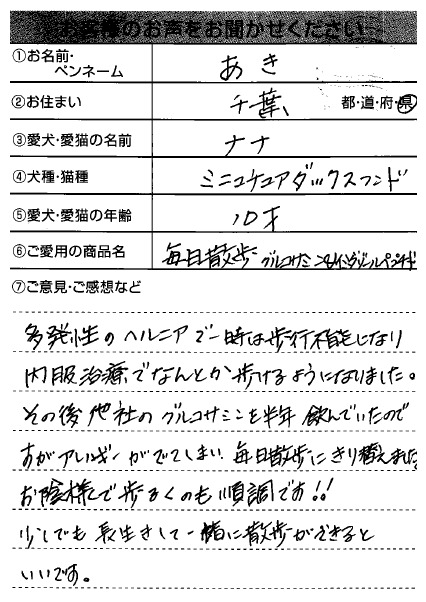 お客様のお声をお聞かせください
①お名前・ペンネーム あき
②お住まい 千葉、 都・道・府・県
③愛犬・愛猫の名前 ナナ
④犬種・猫種 ミニュチュアダックスフンド
⑤愛犬・愛猫の年齢 10才
⑥ご愛用の商品名 毎日散歩 グルコサミン
⑦ご意見・ご感想など
多発性のヘルニアで一時は歩行不能になり
内服治療でなんとか歩けるようになりました。
その後他社のグルコサミンを半年飲んでいたので
すがアレルギーがでてしまい毎日散歩にきり替えました
お陰様で歩るくのも順調です!!
少しでも長生きして一緒に散歩ができると
いいです。